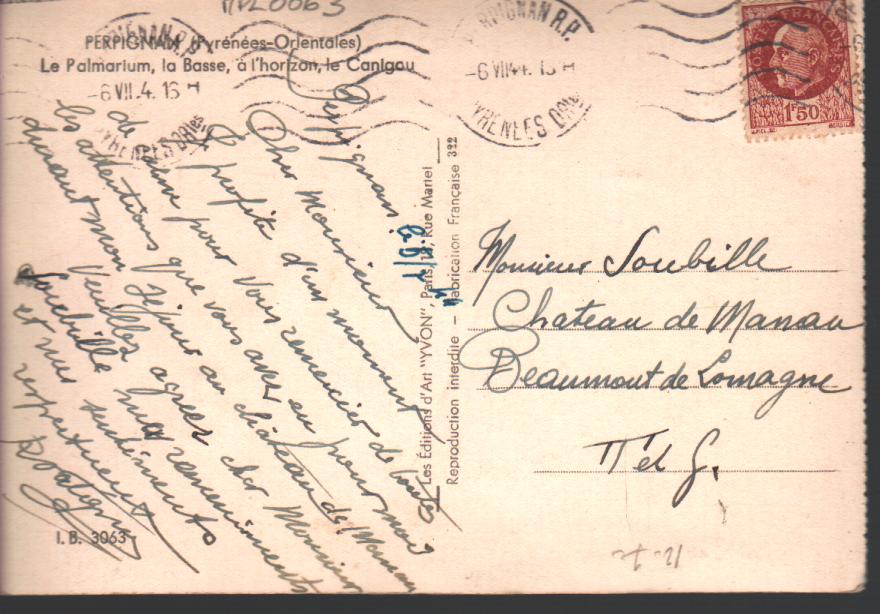 MPL0063
PERPIGNAN (Pyrénées-Orientales)
Le Palmarium, la Basse, à l'horizon, le Canigou
-6 VII.4. 16 H
PERPIGNAN R.P.
-6 VII 44. 16 H
PYRENEES Ores
POSTES FRANÇAISES
1F50
Perpignan le 6/7/44
Cher Monsieur
Je profite d'un moment
de pour vous remercier de toutes
les attentions que vous avez eu pour moi
durant mon séjour au château de Manau
Veuillez agréer cher Monsieur
Soubille mes remerciements
et mes sentiments
respectueux
I.B. 3063
Les Éditions d'Art "YVON", Paris, 13, Rue Martel
Reproduction interdite — Fabrication Française 322
Monsieur Soubille
Chateau de Manau
Beaumont de Lomagne
T et G.